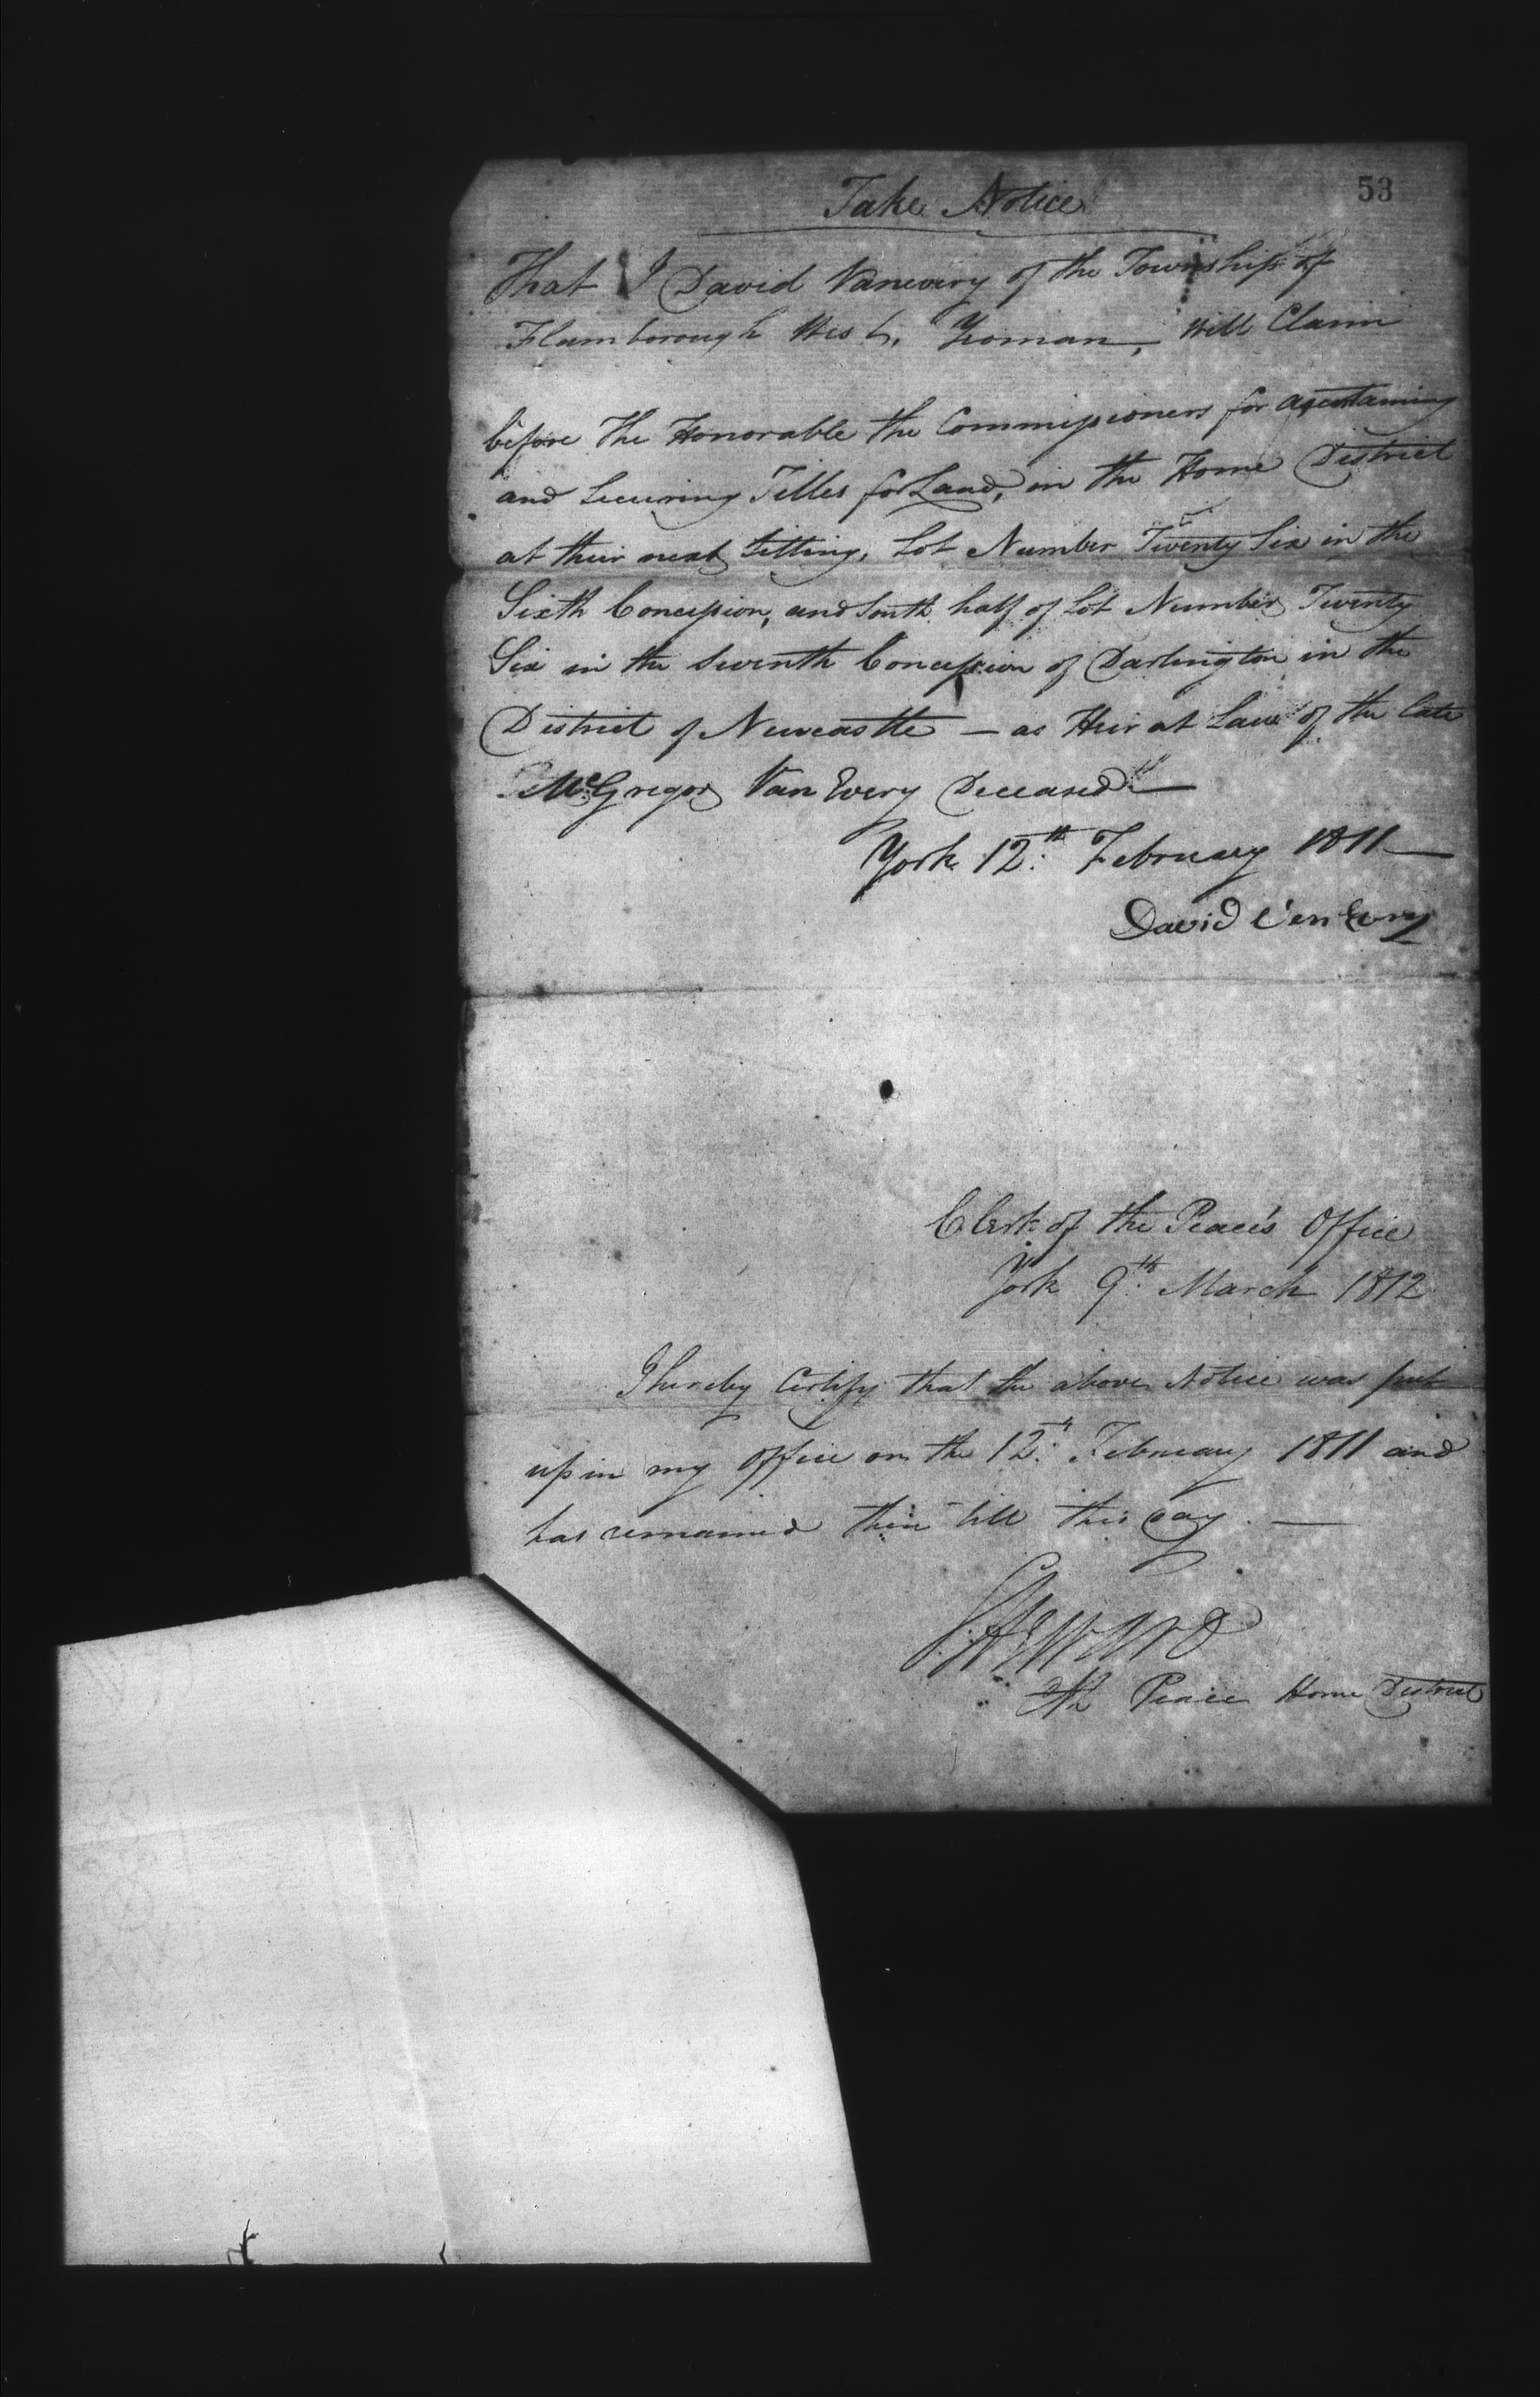 53
Take Notice
That I David Vanevery of the Township of
Flamborough West, Yeoman, Will Claim
before the Honorable the Commissioners for ascertaining
and Securing Titles for Land, in the Home District
at their next Sitting, Lot Number Twenty Six in the
Sixth Concession, and South half of Lot Number Twenty
Six in the Seventh Concession of Darlington in the
District of Newcastle — as Heir at Law of the late
McGregor Van Every Deceased —
York 12th February 1811 —
David Van Every
Clerk of the Peace's Office
York 9th March 1812
I hereby Certify that the above Notice was put
up in my Office on the 12th February 1811 and
has remained there till this day. —
Peace Home District